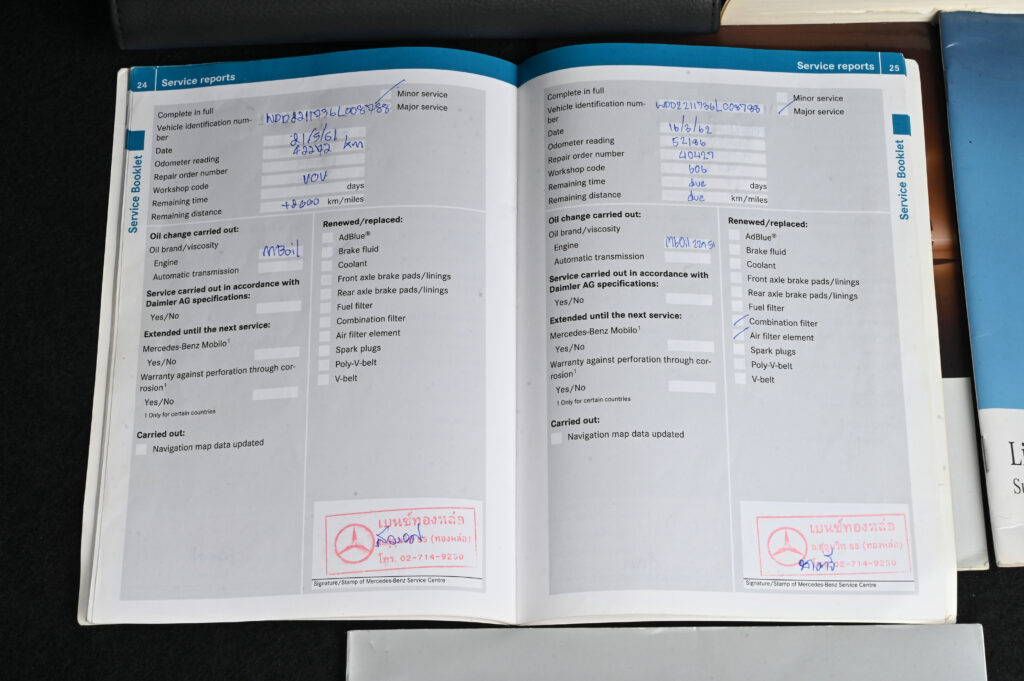 24 Service reports
Complete in full
Minor service
Vehicle identification num-
ber
WDD2211736L008788
Major service
Date 21/5/61
Odometer reading 42292 km
Repair order number
Workshop code VOV
Remaining time days
Remaining distance +2000 km/miles
Oil change carried out:
Oil brand/viscosity
Engine MBOil
Automatic transmission
Service carried out in accordance with
Daimler AG specifications:
Yes/No
Extended until the next service:
Mercedes-Benz Mobilo1
Yes/No
Warranty against perforation through cor-
rosion1
Yes/No
1 Only for certain countries
Carried out:
Navigation map data updated
Renewed/replaced:
AdBlue®
Brake fluid
Coolant
Front axle brake pads/linings
Rear axle brake pads/linings
Fuel filter
Combination filter
Air filter element
Spark plugs
Poly-V-belt
V-belt
เบนซ์ทองหล่อ
55 (ทองหล่อ)
โทร. 02-714-9250
Signature/Stamp of Mercedes-Benz Service Centre
Service Booklet
Service reports 25
Complete in full
Minor service
Vehicle identification num-
ber
WDD2211736L008788
Major service
Date 16/3/62
Odometer reading 52186
Repair order number 40427
Workshop code 606
Remaining time due days
Remaining distance due km/miles
Oil change carried out:
Oil brand/viscosity
Engine MbOil 229.51
Automatic transmission
Service carried out in accordance with
Daimler AG specifications:
Yes/No
Extended until the next service:
Mercedes-Benz Mobilo1
Yes/No
Warranty against perforation through cor-
rosion1
Yes/No
1 Only for certain countries
Carried out:
Navigation map data updated
Renewed/replaced:
AdBlue®
Brake fluid
Coolant
Front axle brake pads/linings
Rear axle brake pads/linings
Fuel filter
Combination filter
Air filter element
Spark plugs
Poly-V-belt
V-belt
เบนซ์ทองหล่อ
ถ.สุขุมวิท 55 (ทองหล่อ)
02-714-9250
Signature/Stamp of Mercedes-Benz Service Centre
Service Booklet